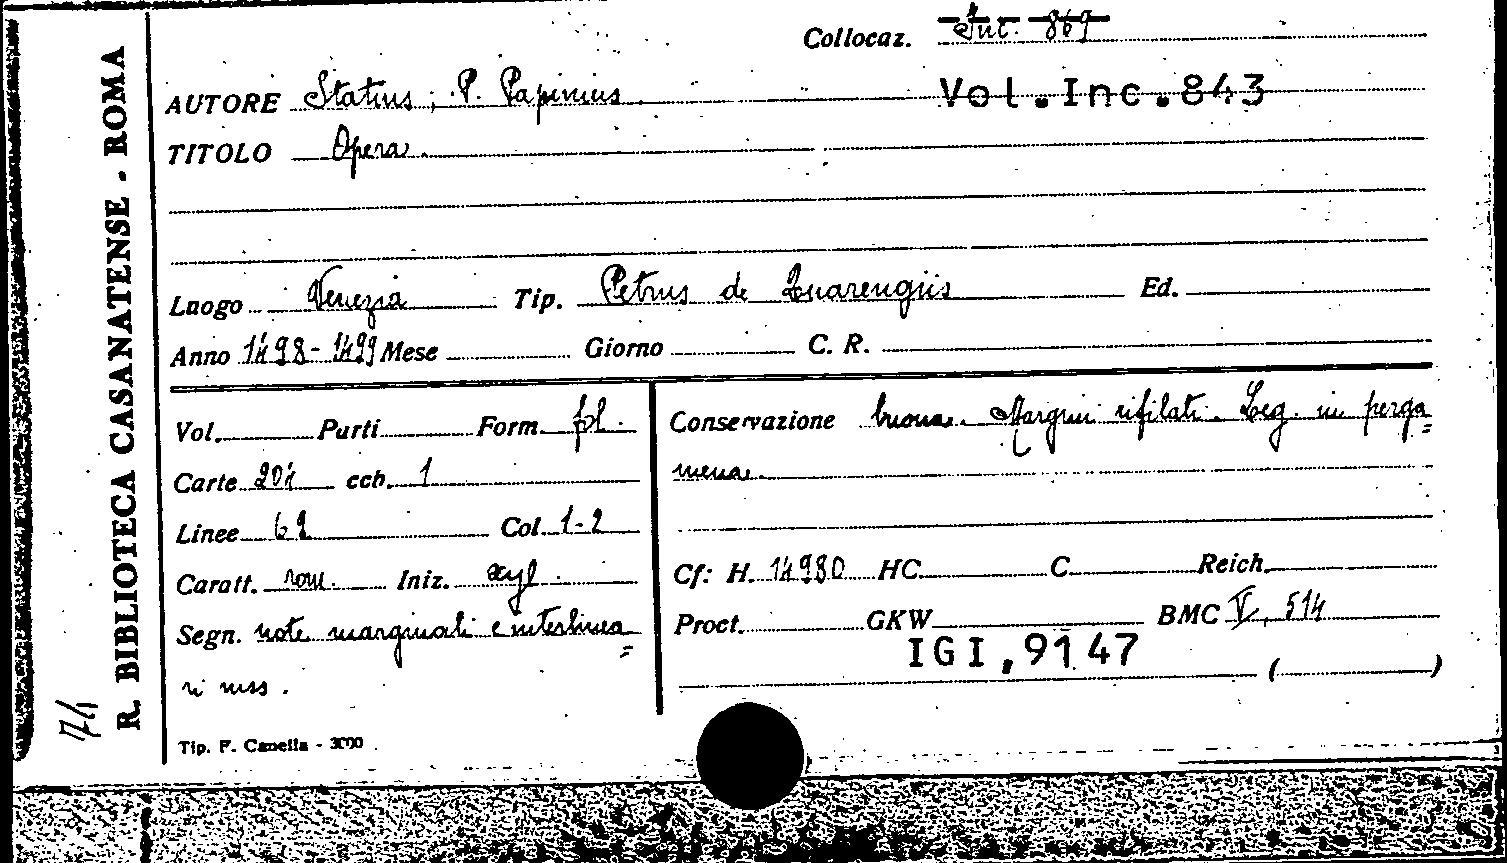 R. BIBLIOTECA CASANATENSE - ROMA
Collocaz. Inc. 869
AUTORE Statius, P. Papinius Vol.Inc.843
TITOLO Opera.
Luogo Venezia Tip. Petrus de Quarengiis Ed.
Anno 1498-1499 Mese Giorno C. R.
Vol. Parti Form. fol.
Carte 204 ecb. 1
Linee 62 Col. 1-2
Caratt. rom. Iniz. xyl.
Segn. note marginali e interlinea=
ri mss.
Conservazione buona. Margini rifilati. Leg. in perga=
mena.
Cf: H. 14980 HC. C. Reich.
Proct. GKW BMC V, 514
IGI,9147
( )
Tip. F. Canella - 3000